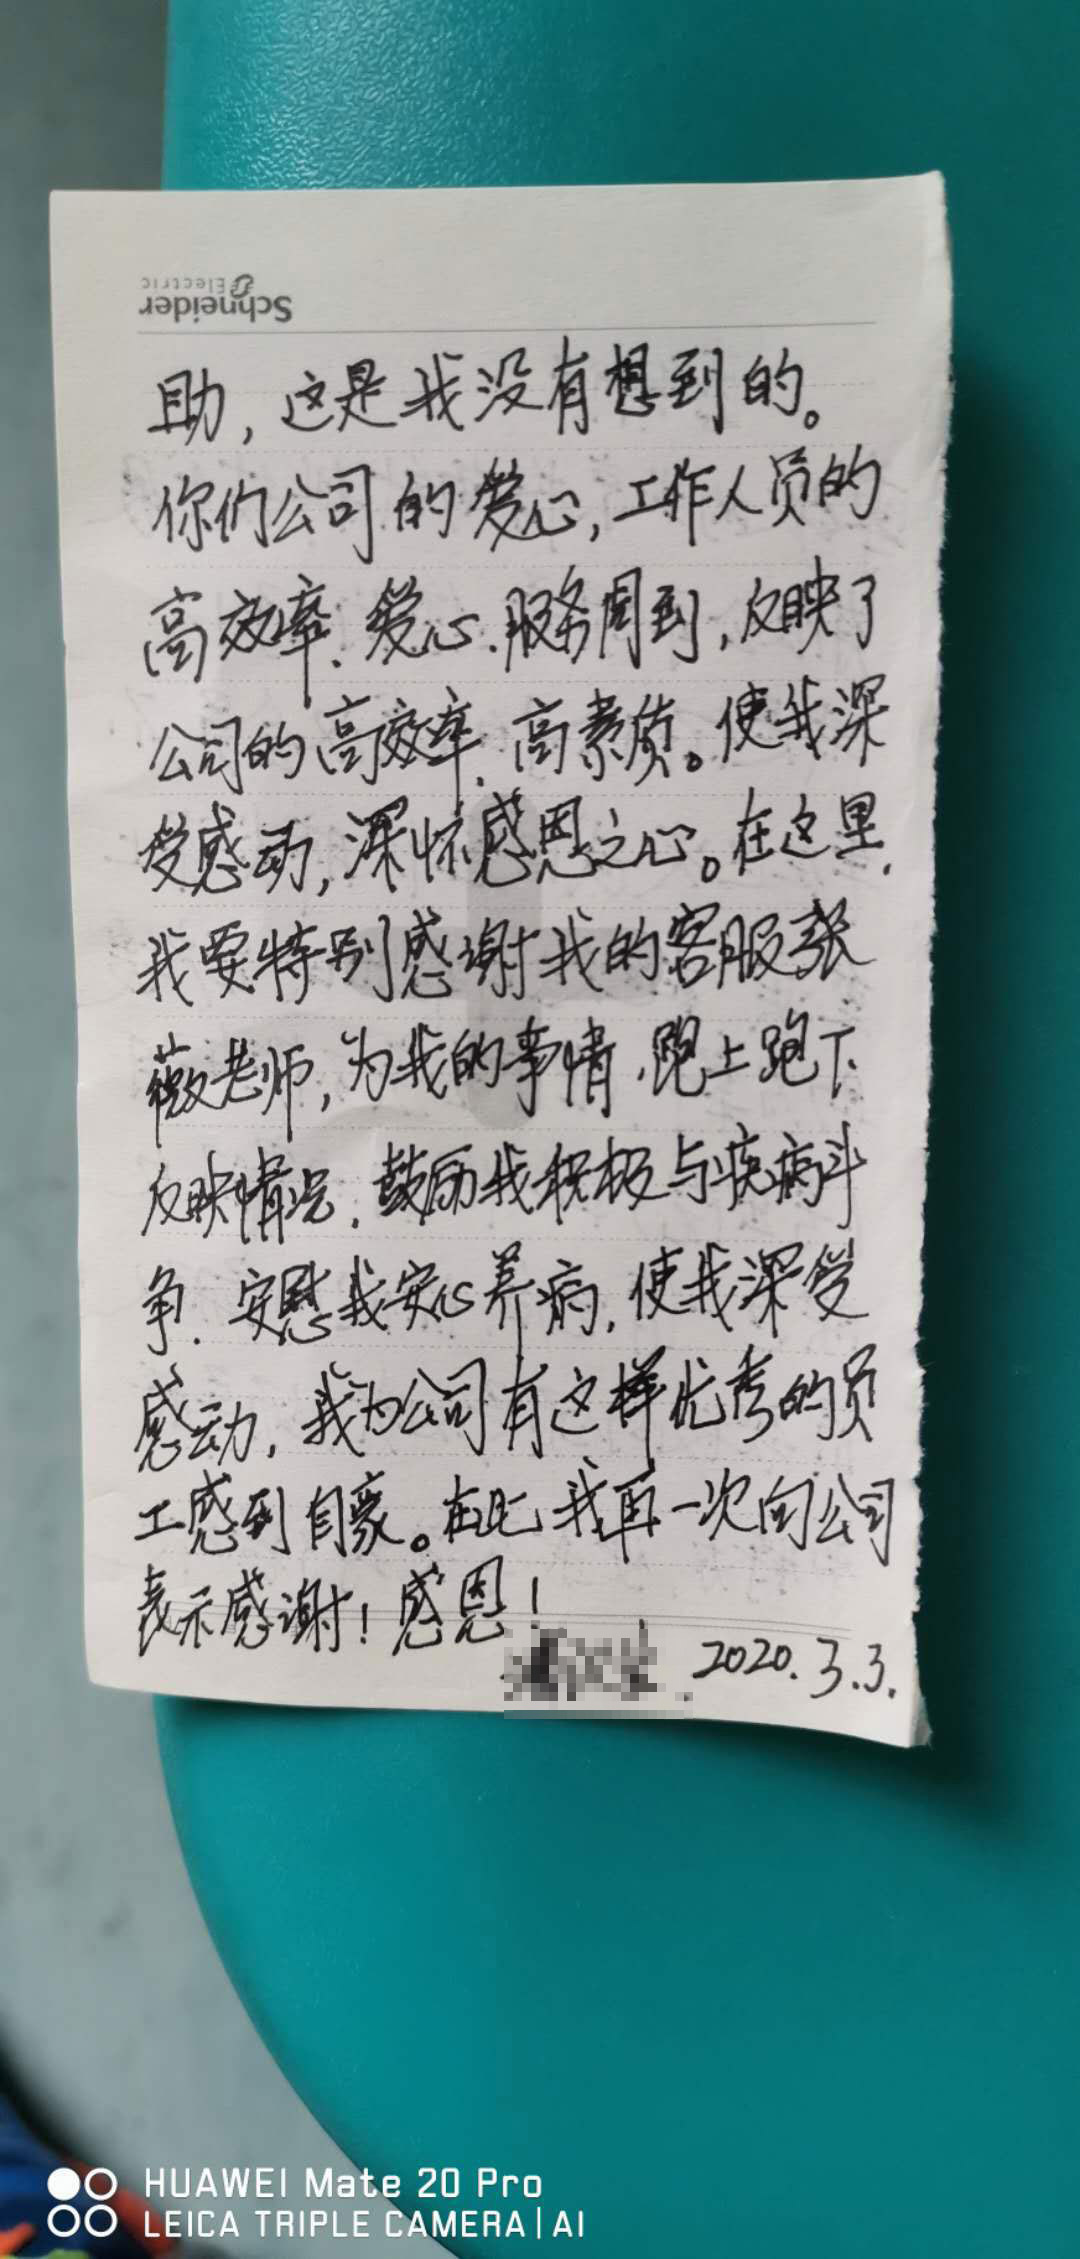 Schneider
Electric
助，这是我没有想到的。
你们公司的爱心，工作人员的
高效率、爱心、服务周到，反映了
公司的高效率、高素质。使我深
受感动，深怀感恩之心。在这里，
我要特别感谢我的客服张
薇老师，为我的事情，跑上跑下
反映情况，鼓励我积极与疾病斗
争、安慰我安心养病，使我深受
感动，我为公司有这样优秀的员
工感到自豪。在此我再一次向公司
表示感谢！感恩！
2020.3.3.
HUAWEI Mate 20 Pro
LEICA TRIPLE CAMERA | AI